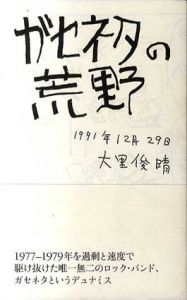 ガセネタの
荒野
1991年12月29日
大里俊晴
1977–1979年を過剰と速度で
駆け抜けた唯一無二のロック・バンド、
ガセネタというデュナミス